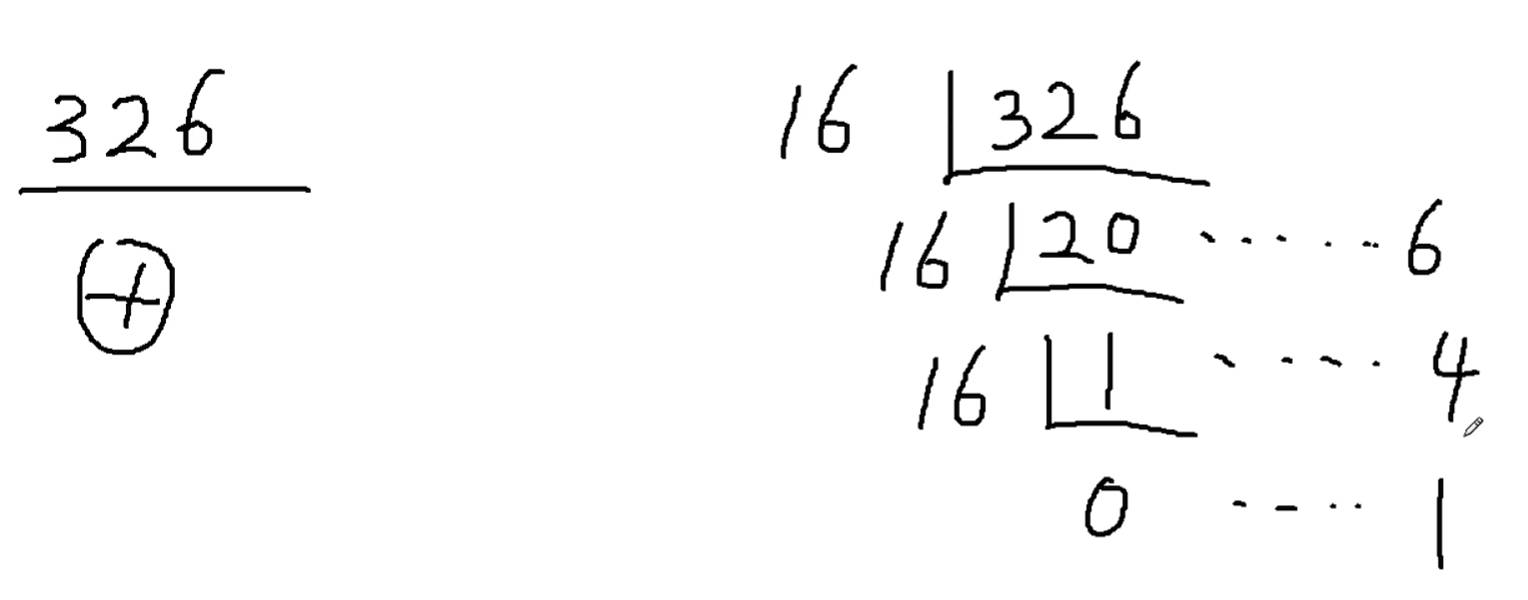 326
+
16 326
16 20 ...... 6
16 1 .... 4
0 .... 1